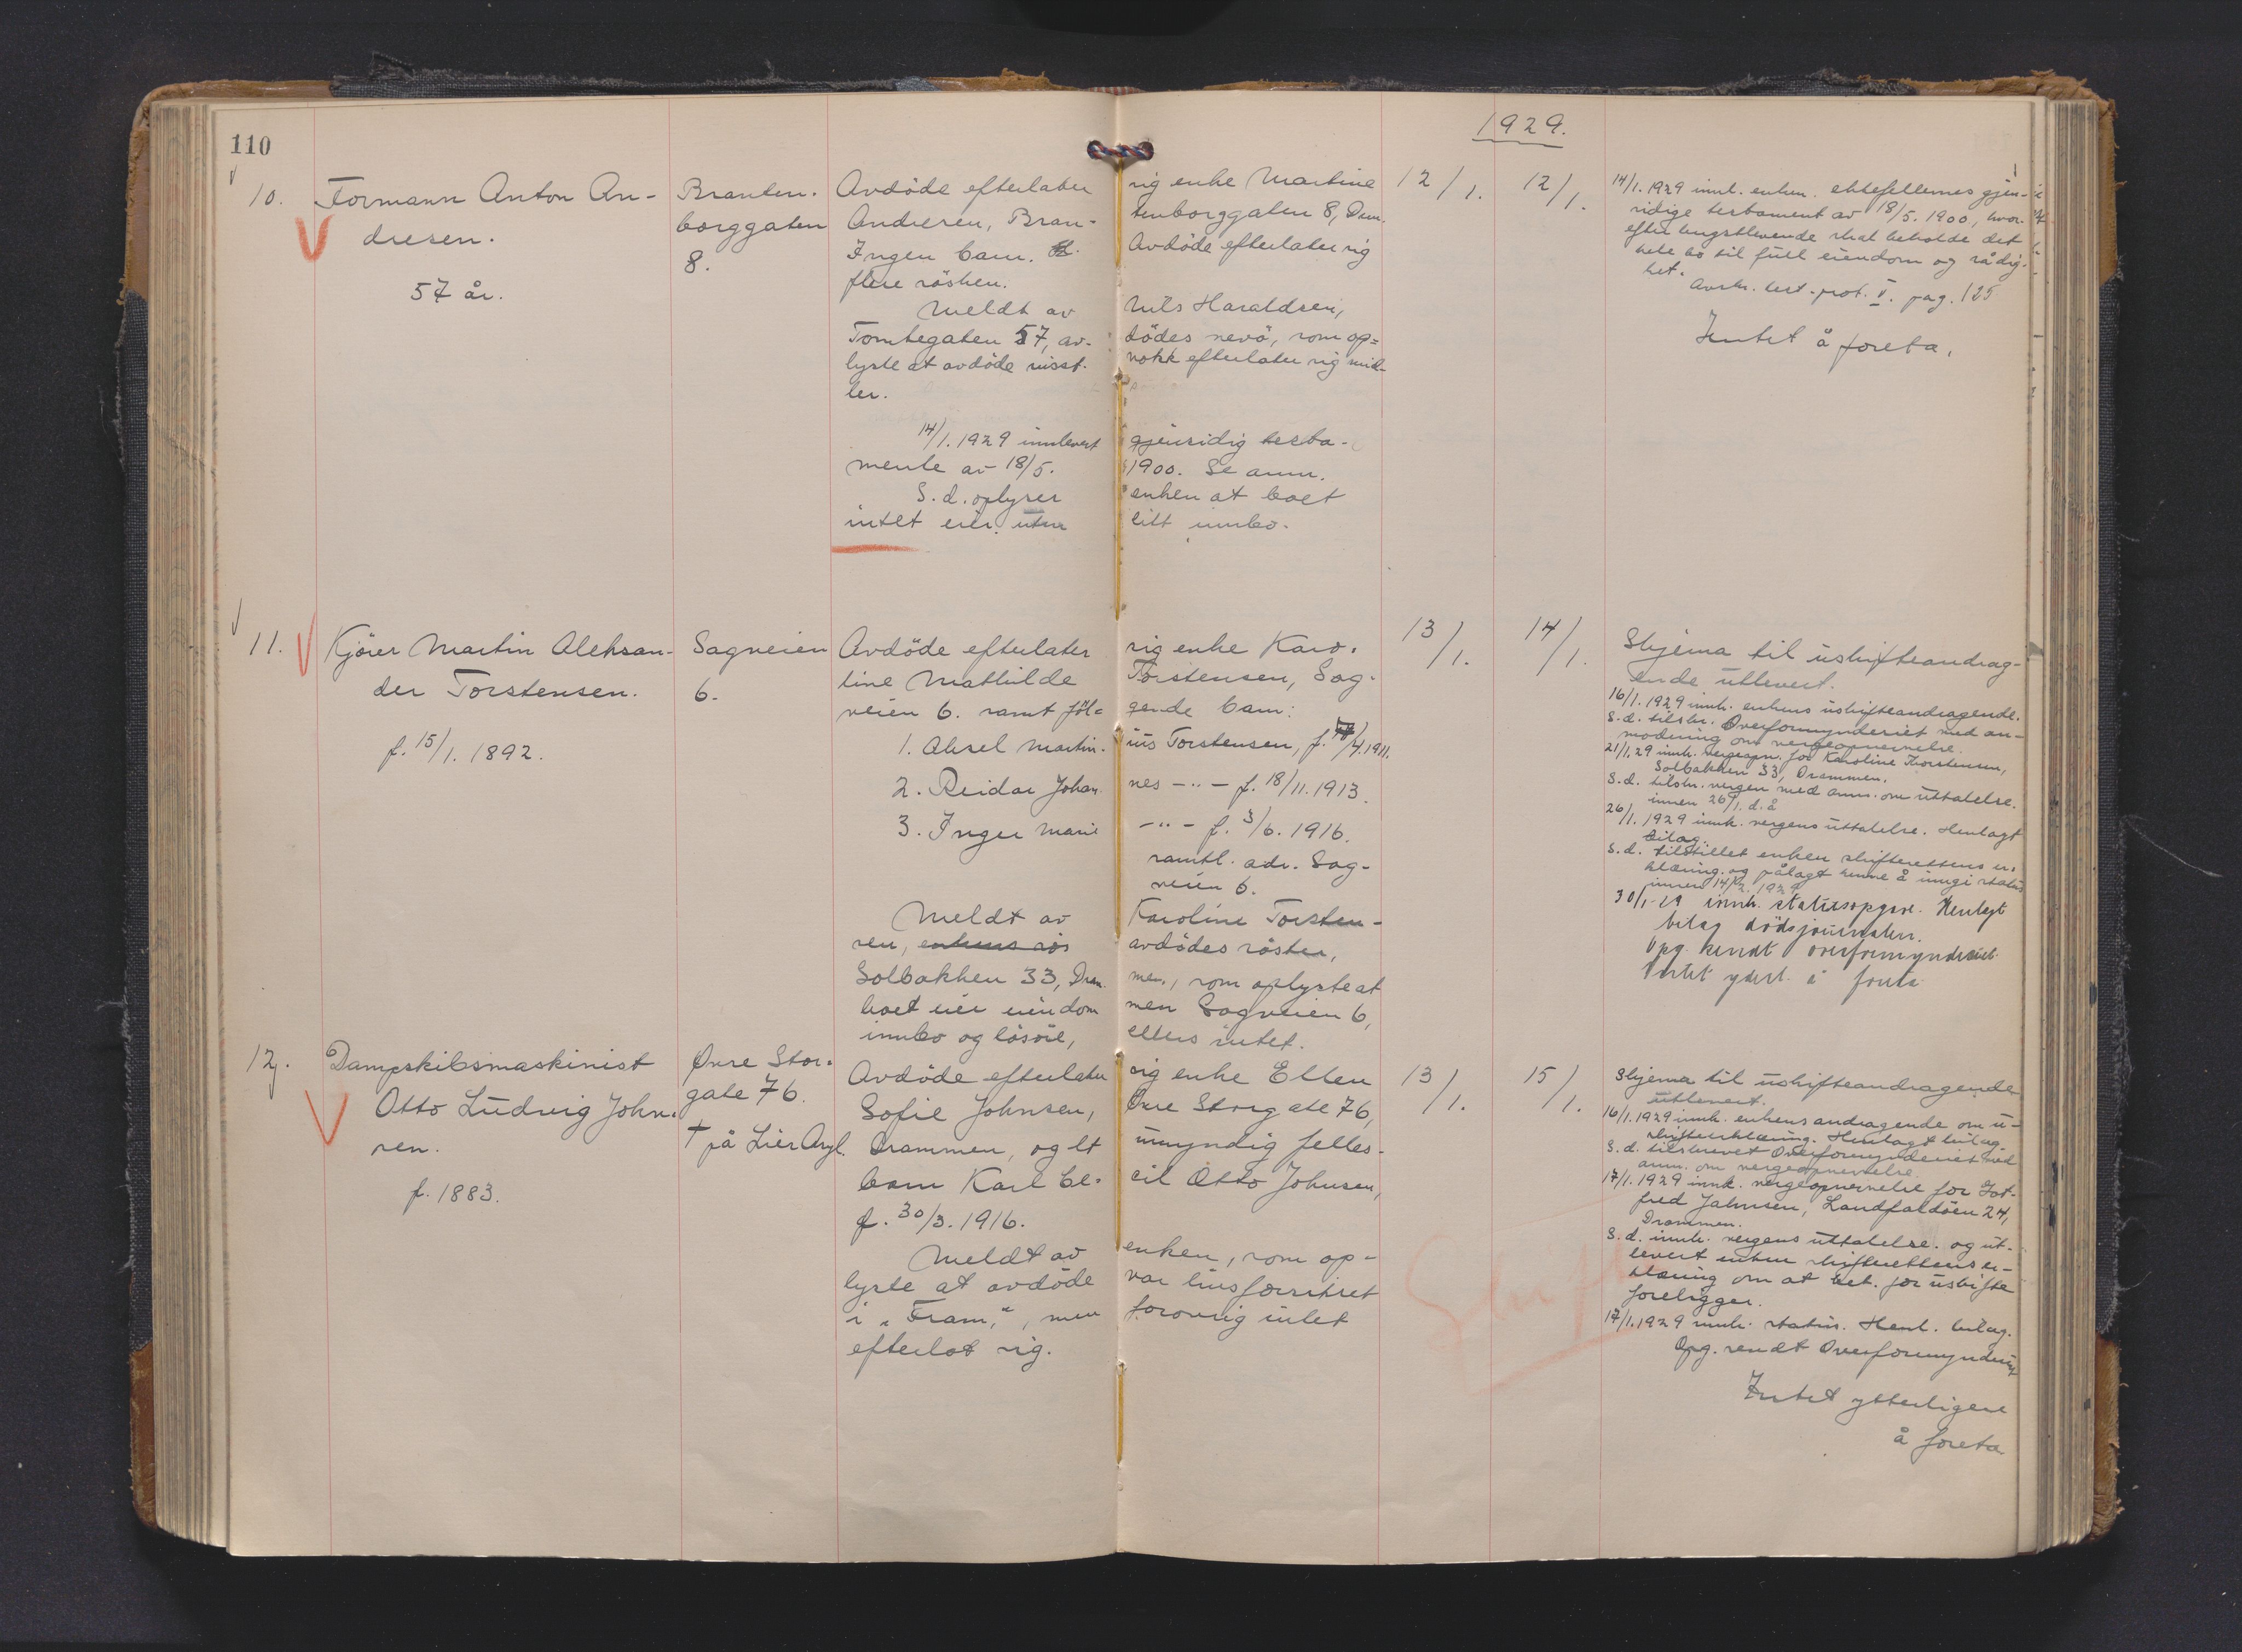 110
1929.
10.
Formann Anton An-
dresen.
57 år.
Branten-
borggaten
8.
Avdöde efterlater sig enke Martine
Andresen, Bran- tenborggaten 8, Drm.
Ingen barn. Avdöde efterlater sig
flere sösken.
Meldt av Nils Haraldsen,
Tomtegaten 57, av- dödes nevö, som op-
lyste at avdöde visst- nokk efterlater sig mid-
ler.
14/1. 1929 innlevert gjensidig testa-
mente av 18/5. 1900. Se anm.
S. d. oplyser enken at boet
intet eier uten litt innbo.
12/1.
12/1.
14/1. 1929 innl. enken ektefellernes gjen-
sidige testament av 18/5. 1900, hvor-
efter lengstlevende skal beholde det
hele bo til full eiendom og rådig-
het.
Avskr. test.-prot. V. pag. 125
Intet å foreta.
11.
Kjörer Martin Aleksan-
der Torstensen.
f. 15/1. 1892.
Sagveien
6.
Avdöde efterlater sig enke Karo-
line Mathilde Torstensen, Sag-
veien 6. samt föl- gende barn:
1. Aksel Martin- ius Torstensen, f. /4. 1911.
2. Reidar Johan- nes -"- f. 18/11. 1913.
3. Inger Marie -"- f. 3/6. 1916.
samtl. adr. Sag-
veien 6.
Meldt av Karoline Torsten-
sen, enkens sös avdödes söster,
Solbakken 33, Dram- men, som oplyste at
boet eier eiendommen Sagveien 6,
innbo og lösöre, ellers intet.
13/1.
14/1.
Skjema til uskifteandrag-
ende utlevert.
16/1. 1929 innk. enkens uskifteandragende.
S. d. tilskr. Overformynderiet med an-
modning om vergeopnevnelse.
21/1. 29 innk. vergeopn. for Karoline Thorstensen,
Solbakken 33, Drammen.
S. d. tilskr. vergen med anm. om uttalelse.
innen 26/1. d. å
26/1. 1929 innk. vergens uttalelse. Henlagt
bilag.
S. d. tilstillet enken skifterettens er-
klæring og pålagt henne å inngi status
innen 14/2. 1929
30/1-29 innk. statusopgave. Henlagt
bilag dödsjournalen.
Opg. sendt overformynderiet.
Intet ytterl. å foreta
12.
Dampskibsmaskinist
Otto Ludvig John-
sen.
f. 1883.
Övre Stor-
gate 76.
† på Lier Asyl.
Avdöde efterlater sig enke Ellen
Sofie Johnsen, Övre Storgate 76,
Drammen, og et umyndig felles-
barn Karl Ce- cil Otto Johnsen,
f. 30/3. 1916.
Meldt av enken, som op-
lyste at avdöde var livsforsikret
i „Fram", men forövrig intet
efterlot sig.
13/1.
15/1.
Skjema til uskifteandragende
utlevert.
16/1. 1929 innk. enkens andragende om u-
skifteerklæring. Henlagt bilag.
S. d. tilskrevet Overformynderiet med
anm. om vergeopnevnelse.
17/1. 1929 innk. vergeopnevnelse for Got-
fred Jahnsen, Landfaldöen 24,
Drammen.
S. d. innk. vergens uttalelse. og ut-
levert enken skifterettens er-
klæring om at bet. for uskifte
foreligger.
17/1. 1929 innk. status. Henl. bilag.
Opg. sendt Overformynderiet
Intet ytterligere
å foreta